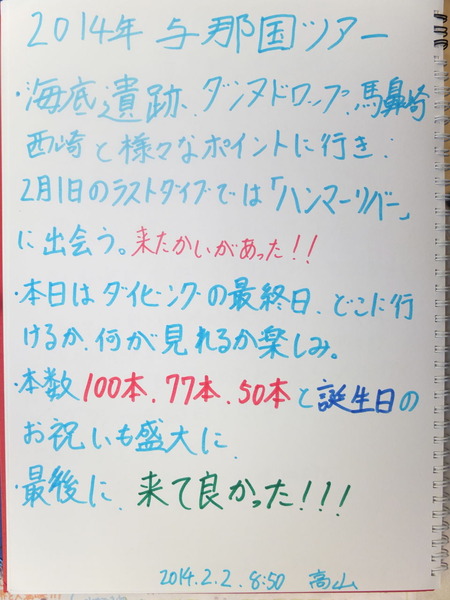 2014年 与那国ツアー
・海底遺跡、ダンヌドロップ、馬鼻崎
西崎と様々なポイントに行き、
2月1日のラストダイブでは「ハンマーリバー」
に出会う。来たかいがあった!!
・本日はダイビングの最終日、どこに行
けるか、何が見れるか楽しみ。
・本数100本、77本、50本と誕生日の
お祝いも盛大に、
・最後に、来て良かった!!!
2014.2.2. 8:50 高山